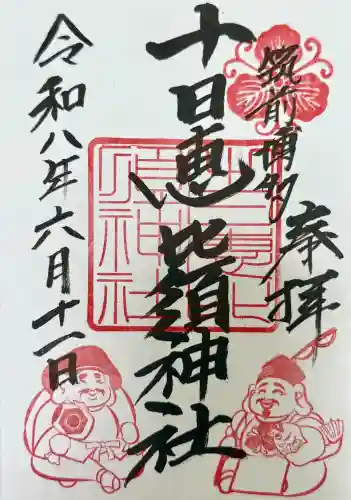 奉拝
筑前博多
十日恵比須神社
令和八年六月十一日